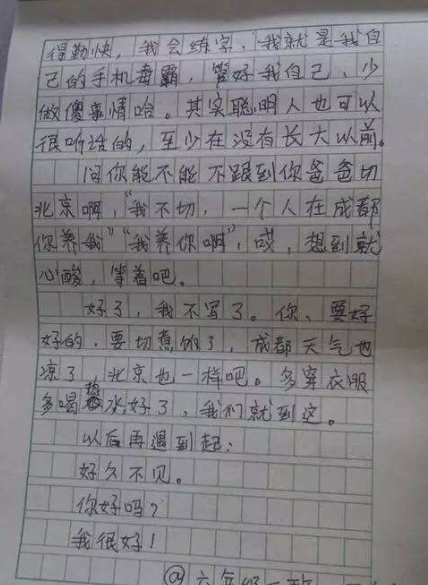 得勤快,我会练字,我就是我自
己的手机毒霸,管好我自己、少
做傻事情哈。其实聪明人也可以
很听话的,至少在没有长大以前。
问你能不能不跟到你爸爸切
北京啊,“我不切,一个人在成都
你养我”“我养你啊”,哎,想到就
心酸,等着吧。
好了,我不写了。你、要好
好的,要切煮饭了,成都天气也
凉了,北京也一样吧。多穿衣服
多喝热水好了,我们就到这。
以后再遇到起:
好久不见。
你好吗?
我很好!
@六年级一